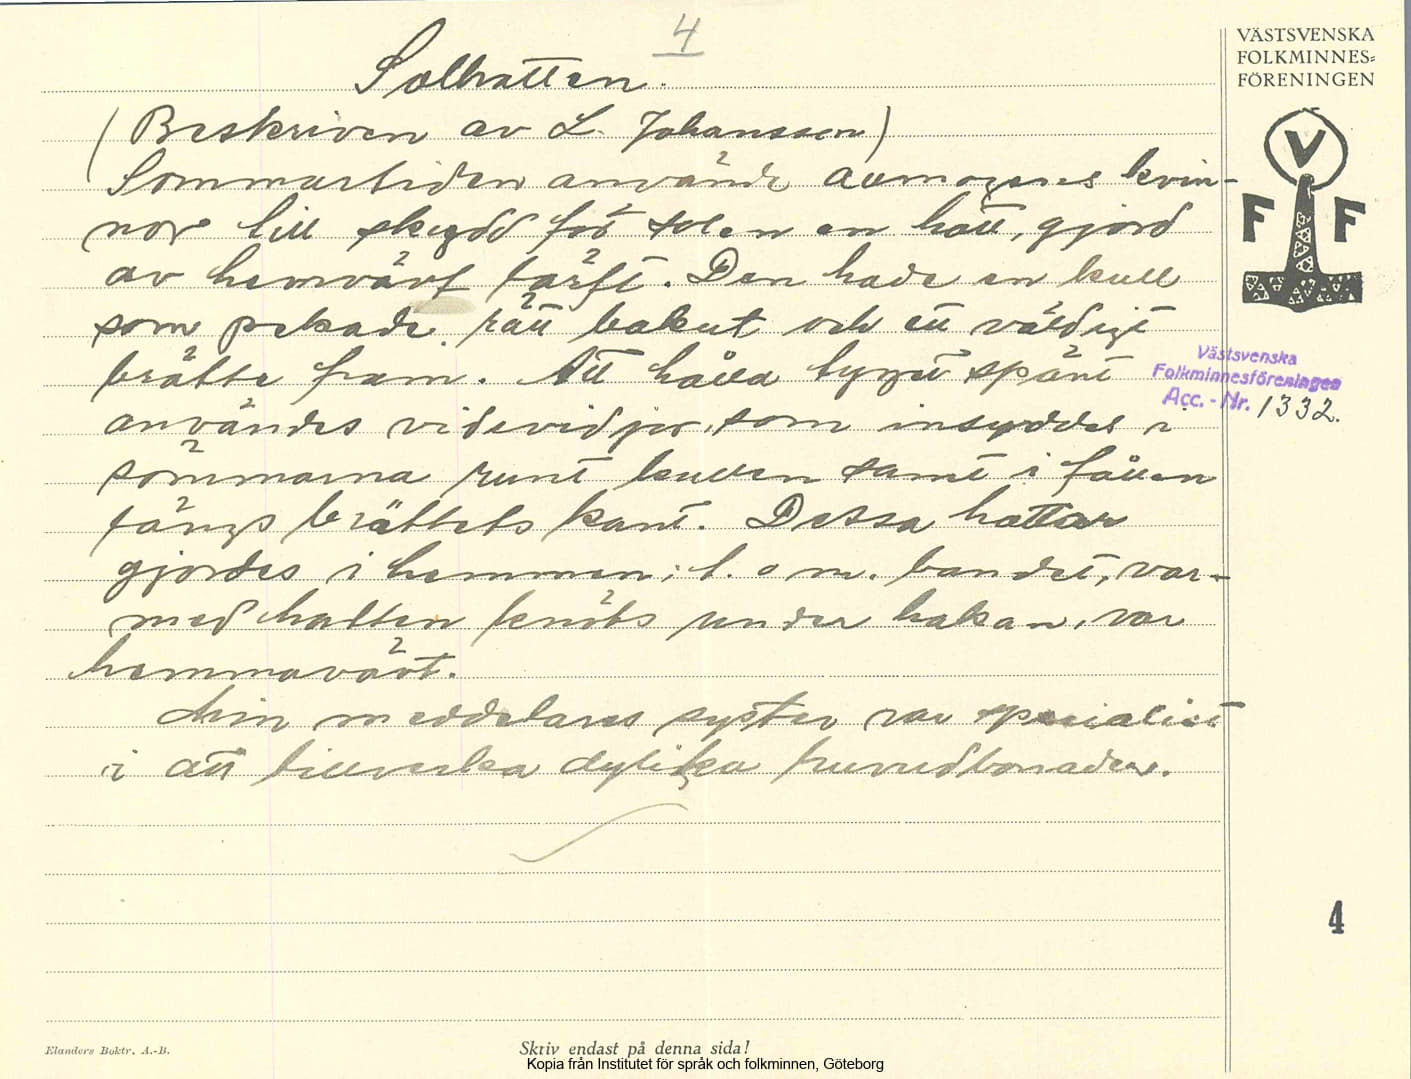 4
Solhatten.
(Beskriven av L. Johansson)
Sommartiden använde allmogens kvin-
nor till skydd för solen en hatt, gjord
av hemvävt lärft. Den hade en kull
som pekade rätt bakut och ett väldigt
brätte fram. Att hålla tyget spänt
användes videvidjor, som insyddes i
sömmarna runt kullen samt i fållen
längs brättets kant. Dessa hattar
gjordes i hemmen; t. o m. bandet, var-
med hatten knöts under hakan, var
hemmavävt.
Min meddelares syster var specialist
i att tillverka dylika huvudbonader.
VÄSTSVENSKA
FOLKMINNES=
FÖRENINGEN
V
F F
Västsvenska
Folkminnesföreningen
Acc. - Nr. 1332.
4
Elanders Boktr. A.-B.
Skriv endast på denna sida!
Kopia från Institutet för språk och folkminnen, Göteborg